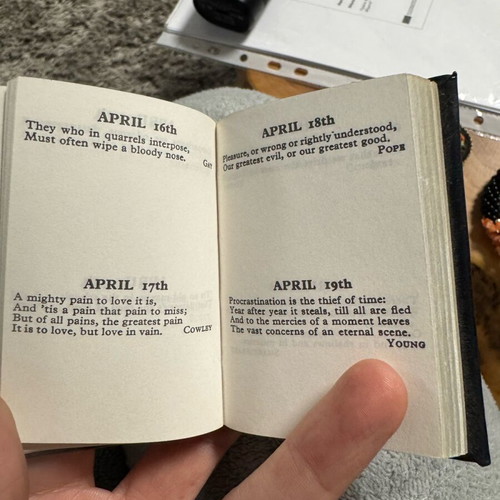 APRIL 16th
They who in quarrels interpose,
Must often wipe a bloody nose.
GAY
APRIL 17th
A mighty pain to love it is,
And 'tis a pain that pain to miss;
But of all pains, the greatest pain
It is to love, but love in vain.
COWLEY
APRIL 18th
Pleasure, or wrong or rightly understood,
Our greatest evil, or our greatest good.
POPE
APRIL 19th
Procrastination is the thief of time:
Year after year it steals, till all are fled
And to the mercies of a moment leaves
The vast concerns of an eternal scene.
YOUNG